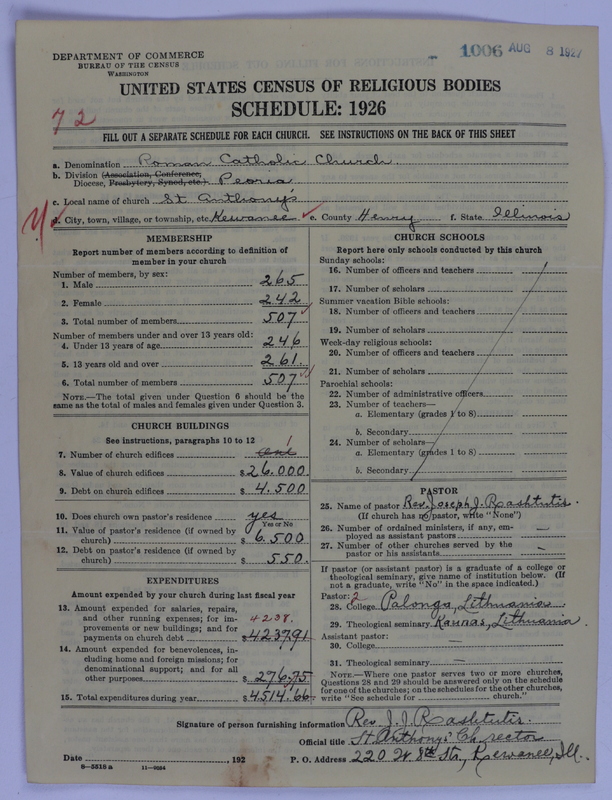 1006 AUG 8 1927
DEPARTMENT OF COMMERCE
BUREAU OF THE CENSUS
WASHINGTON
UNITED STATES CENSUS OF RELIGIOUS BODIES
SCHEDULE: 1926
72
FILL OUT A SEPARATE SCHEDULE FOR EACH CHURCH. SEE INSTRUCTIONS ON THE BACK OF THIS SHEET
a. Denomination Roman Catholic Church.
b. Division (Association, Conference,
Diocese, Presbytery, Synod, etc.) Peoria
c. Local name of church St Anthony's
d. City, town, village, or township, etc. Kewanee e. County Henry f. State Illinois
MEMBERSHIP
Report number of members according to definition of
member in your church
Number of members, by sex:
1. Male 265
2. Female 242
3. Total number of members 507
Number of members under and over 13 years old:
4. Under 13 years of age 246
5. 13 years old and over 261
6. Total number of members 507
NOTE.—The total given under Question 6 should be the
same as the total of males and females given under Question 3.
CHURCH BUILDINGS
See instructions, paragraphs 10 to 12
7. Number of church edifices 1
8. Value of church edifices $26.000
9. Debt on church edifices $4.500
10. Does church own pastor's residence yes
Yes or No
11. Value of pastor's residence (if owned by
church) $6.500
12. Debt on pastor's residence (if owned by
church) $550.
EXPENDITURES
Amount expended by your church during last fiscal year
13. Amount expended for salaries, repairs,
and other running expenses; for im-
provements or new buildings; and for
payments on church debt 4238. $4237.91
14. Amount expended for benevolences, in-
cluding home and foreign missions; for
denominational support; and for all
other purposes $276.75
15. Total expenditures during year $4514.66
CHURCH SCHOOLS
Report here only schools conducted by this church
Sunday schools:
16. Number of officers and teachers
17. Number of scholars
Summer vacation Bible schools:
18. Number of officers and teachers
19. Number of scholars
Week-day religious schools:
20. Number of officers and teachers
21. Number of scholars
Parochial schools:
22. Number of administrative officers
23. Number of teachers—
a. Elementary (grades 1 to 8)
b. Secondary
24. Number of scholars—
a. Elementary (grades 1 to 8)
b. Secondary
PASTOR
25. Name of pastor Rev. Joseph J. Rashtutis.
(If church has no pastor, write "None")
26. Number of ordained ministers, if any, em-
ployed as assistant pastors —
27. Number of other churches served by the
pastor or his assistants —
If pastor (or assistant pastor) is a graduate of a college or
theological seminary, give name of institution below. (If
not a graduate, write "No" in the space indicated.)
Pastor: 2
28. College Palonga, Lithuania
29. Theological seminary Kaunas, Lithuania.
Assistant pastor:
30. College —
31. Theological seminary —
NOTE.—Where one pastor serves two or more churches,
Questions 28 and 29 should be answered only on the schedule
for one of the churches; on the schedules for the other churches,
write "See schedule for church."
Signature of person furnishing information Rev. J. J. Rashtutis.
Official title St. Anthony's Ch. rector
Date , 192 P. O. Address 220 W. 8th Str., Kewanee, Ill.
8—5518 a 11—9034